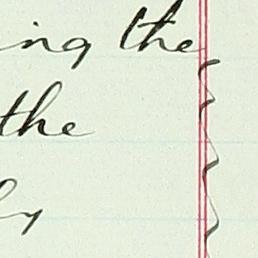 ing the
the
ly